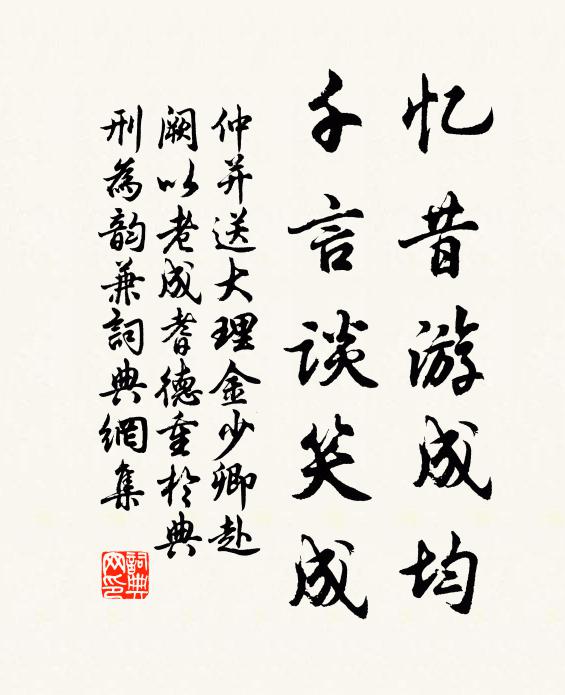 忆昔游成均
千言谈笑成
仲并送大理金少卿赴
阙以老成耆德重於典
刑為韵兼詞典網集
詞典
网印